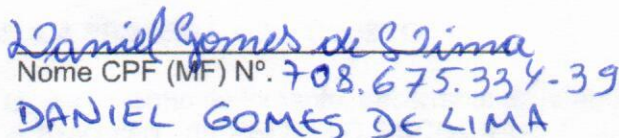 Daniel Gomes de Lima
Nome CPF (MF) Nº. 708.675.334-39
DANIEL GOMES DE LIMA